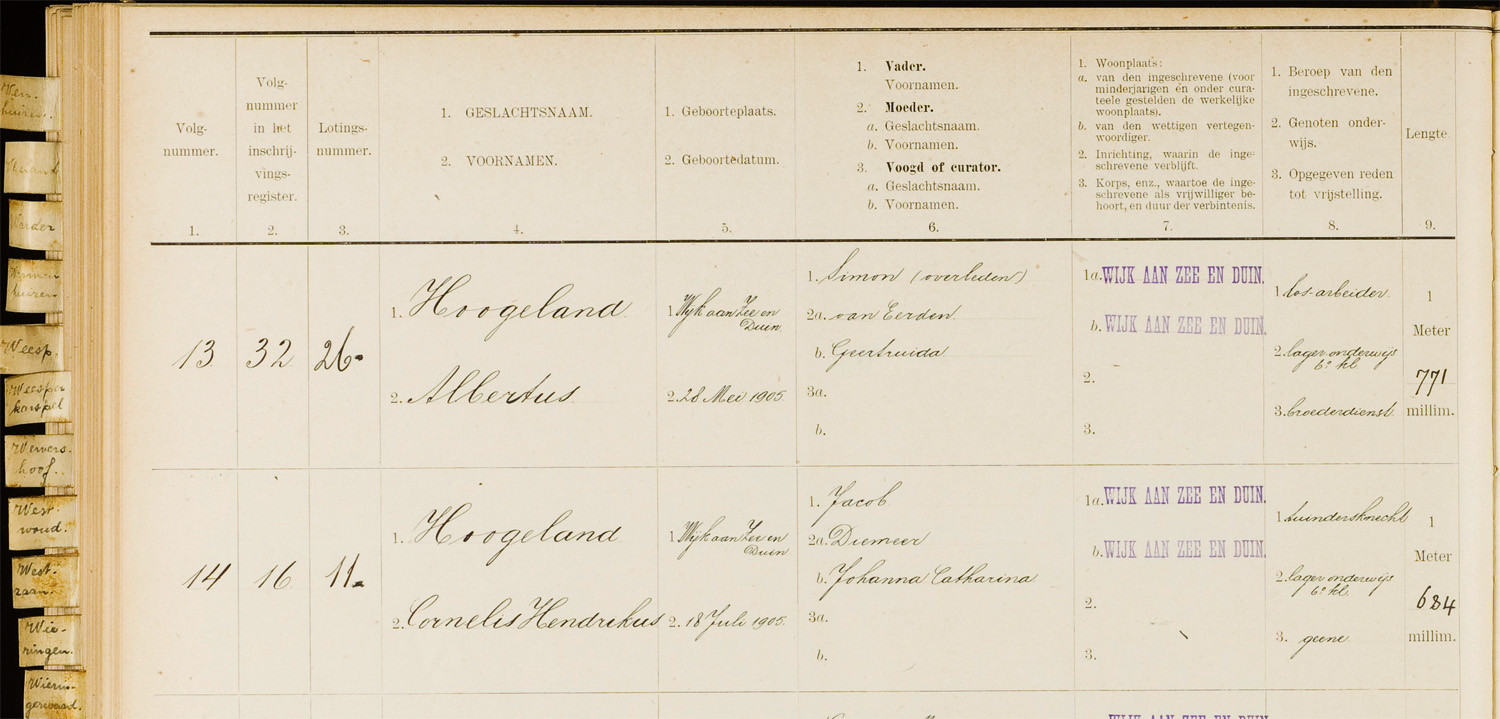 Volg-
nummer.
1.
Volg-
nummer
in het
inschrij-
vings-
register.
2.
Lotings-
nummer.
3.
1. GESLACHTSNAAM.
2. VOORNAMEN.
4.
1. Geboorteplaats.
2. Geboortedatum.
5.
1. Vader.
Voornamen.
2. Moeder.
a. Geslachtsnaam.
b. Voornamen.
3. Voogd of curator.
a. Geslachtsnaam.
b. Voornamen.
6.
1. Woonplaats:
a. van den ingeschrevene (voor
minderjarigen en onder cura-
teele gestelden de werkelijke
woonplaats).
b. van den wettigen vertegen-
woordiger.
2. Inrichting, waarin de inge-
schrevene verblijft.
3. Korps, enz., waartoe de inge-
schrevene als vrijwilliger be-
hoort, en duur der verbintenis.
7.
1. Beroep van den
ingeschrevene.
2. Genoten onder-
wijs.
3. Opgegeven reden
tot vrijstelling.
8.
Lengte.
9.
13
32
26.
1. Hoogeland
2. Albertus
1. Wijk aan Zee en
Duin
2. 28 Mei 1905.
1. Simon (overleden)
2a. van Eerden.
b. Geertruida
3a.
b.
1a. WIJK AAN ZEE EN DUIN.
b. WIJK AAN ZEE EN DUIN.
2.
3.
1. los-arbeider.
2. lager onderwijs
6e kl.
3. broederdienst.
1
Meter
771
millim.
14
16
11.
1. Hoogeland
2. Cornelis Hendrikus
1. Wijk aan Zee en
Duin
2. 18 Juli 1905.
1. Jacob.
2a. Diemeer
b. Johanna Catharina
3a.
b.
1a. WIJK AAN ZEE EN DUIN.
b. WIJK AAN ZEE EN DUIN.
2.
3.
1. tuindersknecht
2. lager onderwijs
6e kl.
3. geene
1
Meter
684
millim.
Ven-
huizen.
Warder
Weesp.
Weesper
karspel
Wervers-
hoof.
West-
woud.
West-
zaan.
Wie-
ringen.
Wierin-
gerwaard.